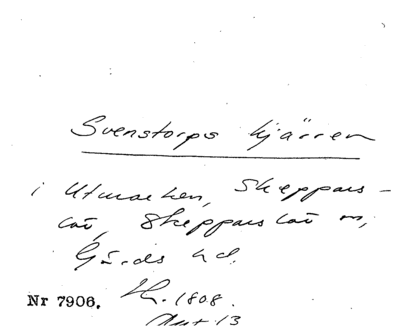 Svenstorps kjärren
i Utmarken, Skeppars-
löv, Skepparslöv sn,
Gärds hd.
Nr 7906. Sk. 1808.
Akt 13